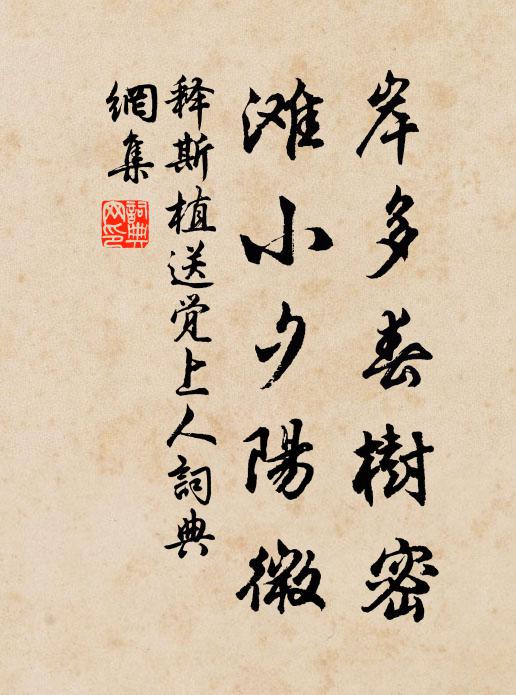 岸多春樹密
滩小夕陽微
释斯植送觉上人詞典
網集
詞典
网印